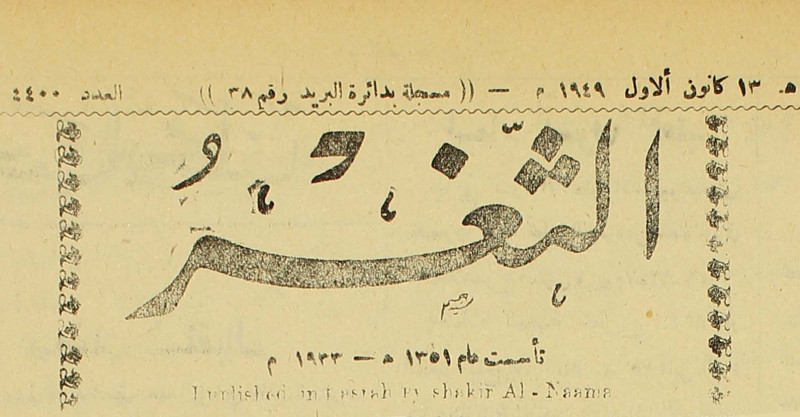 هـ ١٣ كانون ألاول ١٩٤٩ م — (( مسجلة بدائرة البريد رقم ٣٨ )) العدد ٤٤٠٠
الثَّغْرُ
تأسست عام ١٣٥١ هـ — ١٩٣٣ م
Published in Basrah By shakir Al - Naama